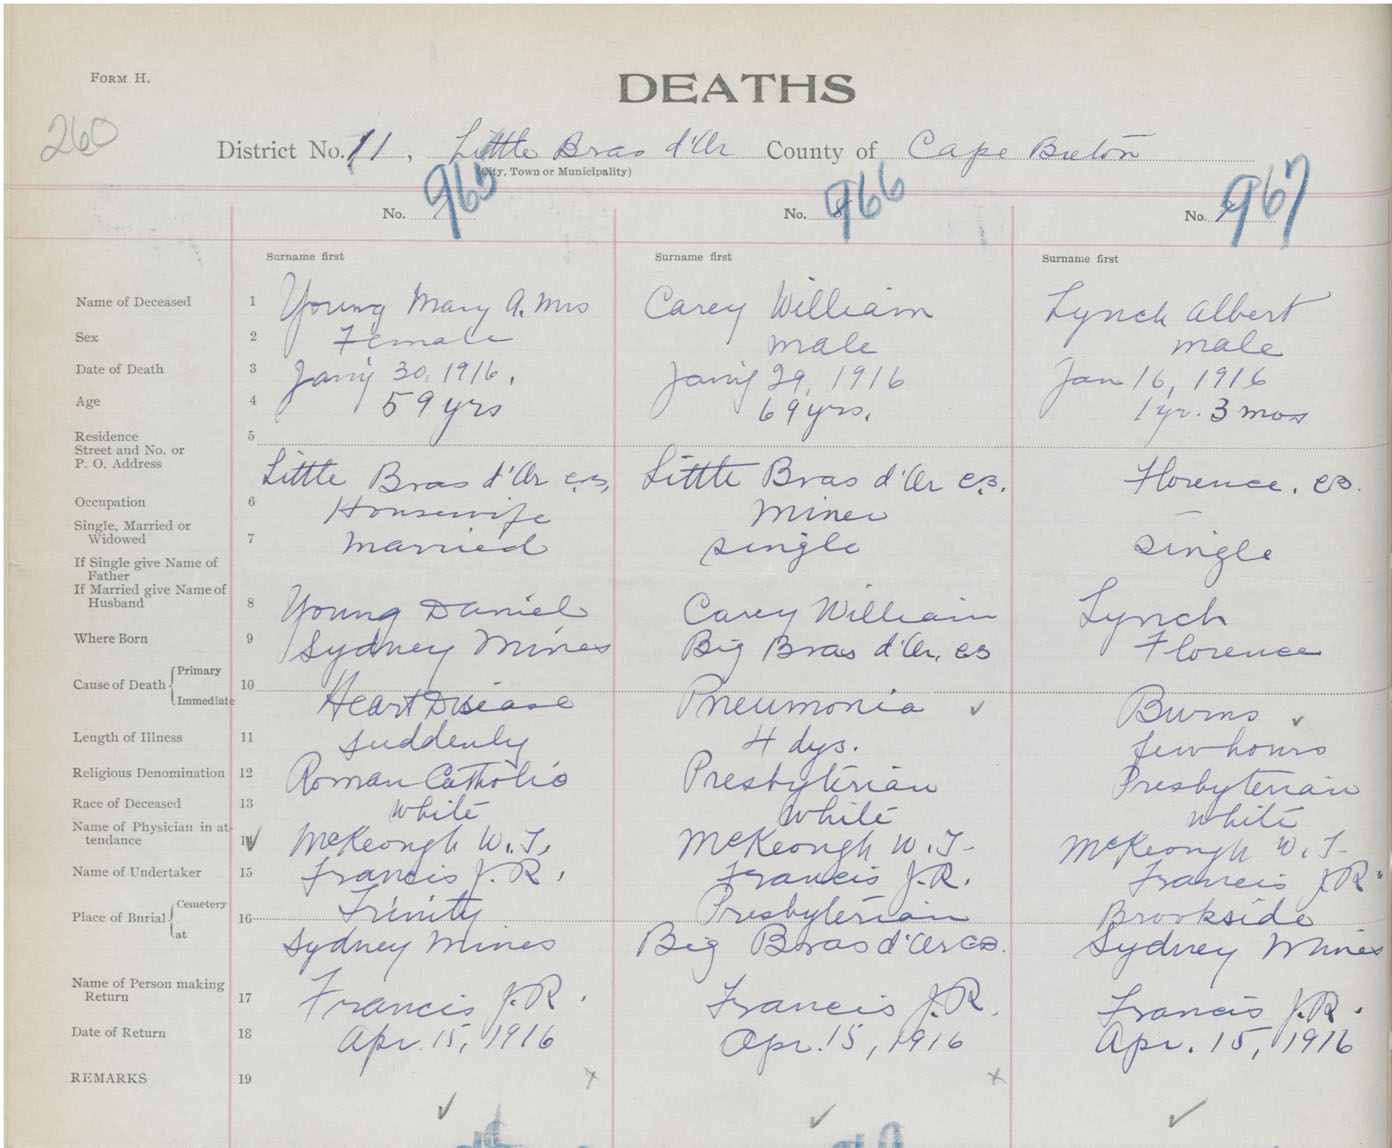 FORM H.
DEATHS
260
District No. 11, Little Bras d'Or County of Cape Breton
(City, Town or Municipality)
No. 965 No. 966 No. 967
Surname first Surname first Surname first
Name of Deceased 1 Young Mary A. Mrs Carey William Lynch Albert
Sex 2 Female male male
Date of Death 3 Jan'y 30, 1916. Jan'y 29, 1916 Jan 16, 1916
Age 4 59 yrs 69 yrs. 1 yr. 3 mos
Residence 5
Street and No. or
P. O. Address
Little Bras d'Or C.B. Little Bras d'Or C.B. Florence. C.B.
Occupation 6 Housewife Miner
Single, Married or
Widowed 7 Married single Single
If Single give Name of
Father
If Married give Name of
Husband 8 Young Daniel Carey William Lynch
Where Born 9 Sydney Mines Big Bras d'Or, CB Florence
Cause of Death Primary
Immediate 10 Heart Disease Pneumonia Burns
Length of Illness 11 suddenly 4 dys. few hours
Religious Denomination 12 Roman Catholic Presbyterian Presbyterian
Race of Deceased 13 White White White
Name of Physician in at-
tendance 14 McKeough W. J. McKeough W. J. McKeough W. J.
Name of Undertaker 15 Francis J. R. Francis J. R. Francis J. R.
Place of Burial Cemetery
at 16 Trinity Presbyterian Brookside
Sydney Mines Big Bras d'Or CB. Sydney Mines
Name of Person making
Return 17 Francis J. R. Francis J. R. Francis J. R.
Date of Return 18 Apr. 15, 1916 Apr. 15, 1916 Apr. 15, 1916
REMARKS 19 x x